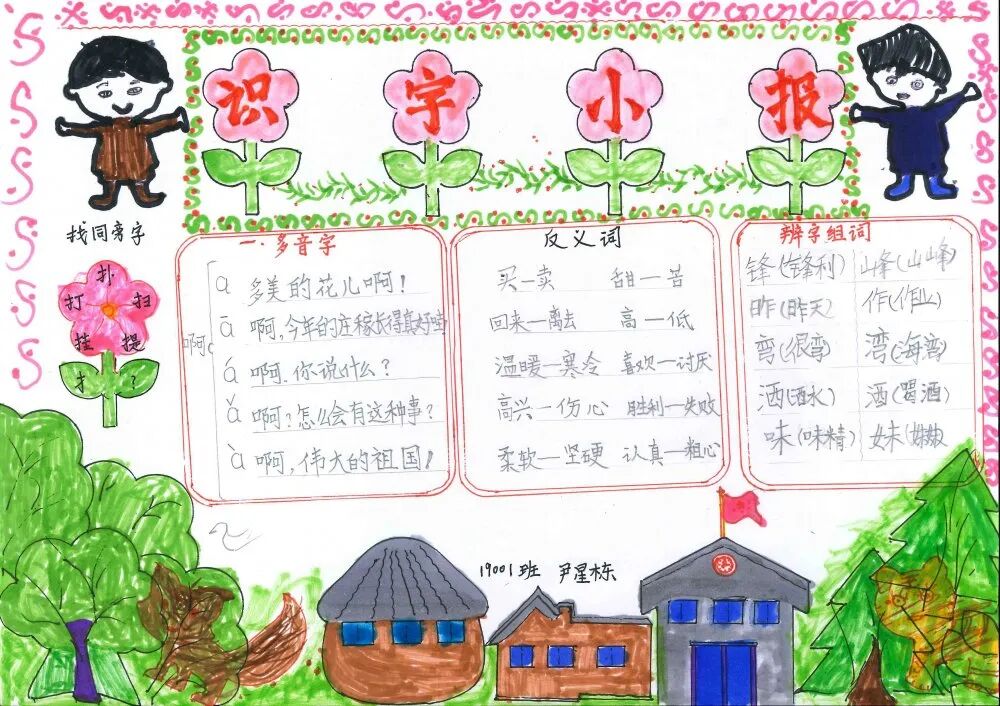 识字小报
找同旁字
扑
打 扫
挂 提
扌 ?
一.多音字
啊
a 多美的花儿啊!
ā 啊,今年的庄稼长得真好哇
á 啊.你说什么?
ǎ 啊?怎么会有这种事?
à 啊,伟大的祖国!
反义词
买—卖 甜—苦
回来—离去 高—低
温暖—寒冷 喜欢—讨厌
高兴—伤心 胜利—失败
柔软—坚硬 认真—粗心
辨字组词
锋(锋利) 峰(山峰)
昨(昨天) 作(作业)
弯(很弯) 湾(海湾)
洒(洒水) 酒(喝酒)
味(味精) 妹(妹妹)
19001班 尹星栋